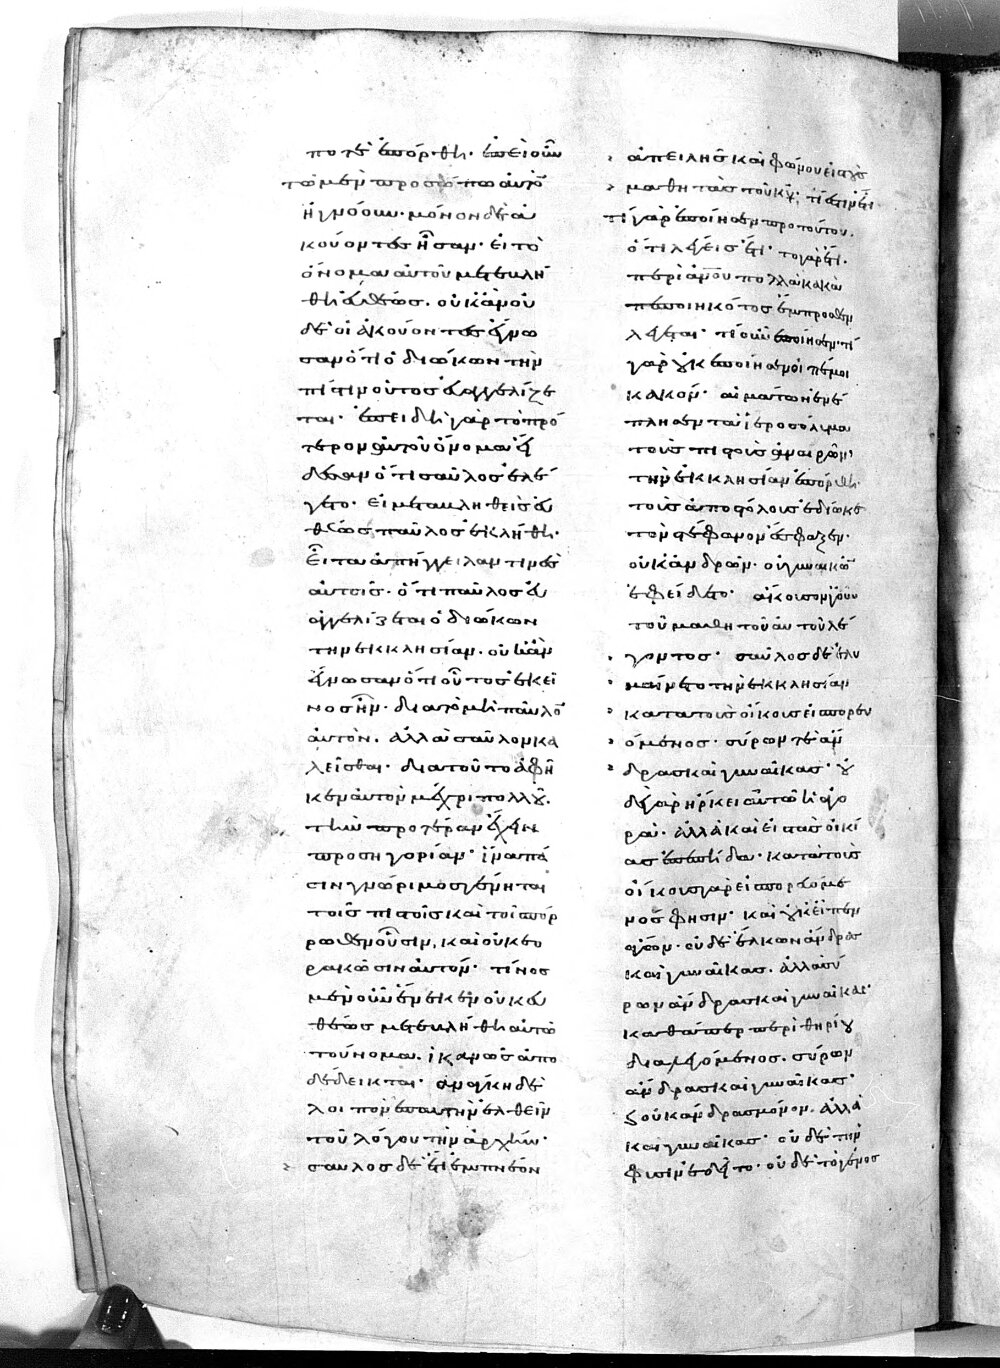 ποτὲ ἐπόρθη. ἐπεὶ οὖν
τὸ μὲν πρόσωπον αὐτοῦ
ἠγνόουν. μόνον δὲ ἀ
κούοντες ἦσαν. εἰ τὸ
ὄνομα αὐτοῦ μετεκλή
θη εὐθέως. οὐκ ἂν οὐ
δὲ οἱ ἀκούοντες ἔγνω
σαν ὅτι ὁ διώκων τὴν
πίστιν οὗτος εὐαγγελίζε
ται. ἐπειδὴ γὰρ τὸ πρό
τερον αὐτοῦ ὄνομα ᾔ
δεσαν ὅτι σαῦλος ἐλέ
γετο. εἰ μετακληθεὶς εὐ
θέως παῦλος ἐκλήθη.
εἶτα ἀπήγγειλαν τινὲς
αὐτοῖς. ὅτι παῦλος εὐ
αγγελίζεται ὁ διώκων
τὴν ἐκκλησίαν. οὐκ ἂν
ἔγνωσαν ὅτι οὗτος ἐκεῖ
νος ἦν. διὰ τὸ μὴ παῦλον
αὐτὸν. ἀλλὰ σαῦλον κα
λεῖσθαι. διὰ τοῦτο ἀφῆ
κεν αὐτὸν μέχρι πολλοῦ.
τὴν προτέραν ἔχειν
προσηγορίαν. ἵνα πᾶ
σιν γνώριμος γένηται
τοῖς πιστοῖς καὶ τοῖς πόρ
ρωθεν οὖσιν, καὶ οὐχ ἑω
ρακόσιν αὐτόν. τίνος
μὲν οὖν ἕνεκεν οὐκ εὐ
θέως μετεκλήθη αὐτῶ
τοὔνομα. ἱκανῶς ἀπο
δέδεικται. ἀνάγκη δὲ
λοιπὸν ἐπ αὐτὴν ἐλθεῖν
τοῦ λόγου τὴν ἀρχήν.
σαυλος δὲ ἔτι ἐμπνέων
ἀπειλῆς καὶ φόνου εἰς τοὺς
μαθητὰς τοῦ κυ. τί ἐστιν ἔτι
τί γὰρ ἐποίησεν πρὸ τούτου.
ὅτι λέγεις ἔτι. τὸ γὰρ ἔτι.
περὶ ανου πολλὰ κακὰ
πεποιηκότος ἔμπροσθεν
λέγεται. τί οὖν ἐποίησεν. τί
γὰρ οὐκ ἐποίησε μοι εἰπέ μοι
κακόν. αἱμάτων ἐνέ
πλησεν τὰ ἱεροσόλυμα
τοὺς πιστοὺς ἀναιρῶν.
τὴν ἐκκλησίαν ἐπόρθη.
τοὺς ἀποστόλους ἐδίωκε
τὸν στέφανον ἔσφαξεν.
οὐκ ἀνδρῶν. οὐ γυναικῶν
ἐφείδετο. ἄκουσον γοῦν
τοῦ μαθητοῦ αὐτοῦ λέ
γοντος. σαῦλος δὲ ἐλυ
μαίνετο τὴν ἐκκλησίαν
κατὰ τοὺς οἴκους εἰσπορευ
όμενος. σύρων τὲ ἄν
δρας καὶ γυναῖκας. οὐ
δὲ γὰρ ἤρκει αὐτῶ ἡ ἀγο
ρά. ἀλλὰ καὶ εἰς τὰς οἰκί
ας ἐπεπήδα. κατὰ τοὺς
οἴκους γὰρ εἰσπορευόμε
νός φησιν. καὶ οὐκ εἶπεν
ἄγων. οὐδὲ ἕλκων ἄνδρας
καὶ γυναῖκας. ἀλλὰ σύ
ρων ἄνδρας καὶ γυναῖκας.
καθάπερ περὶ θηρίου
διαλεγόμενος. σύρων
ἄνδρας καὶ γυναῖκας.
οὐκ ἄνδρας μόνον. ἀλλὰ
καὶ γυναῖκας. οὐδὲ τὴν
φύσιν ἐδεῖτο. οὐδὲ τὸ γένος